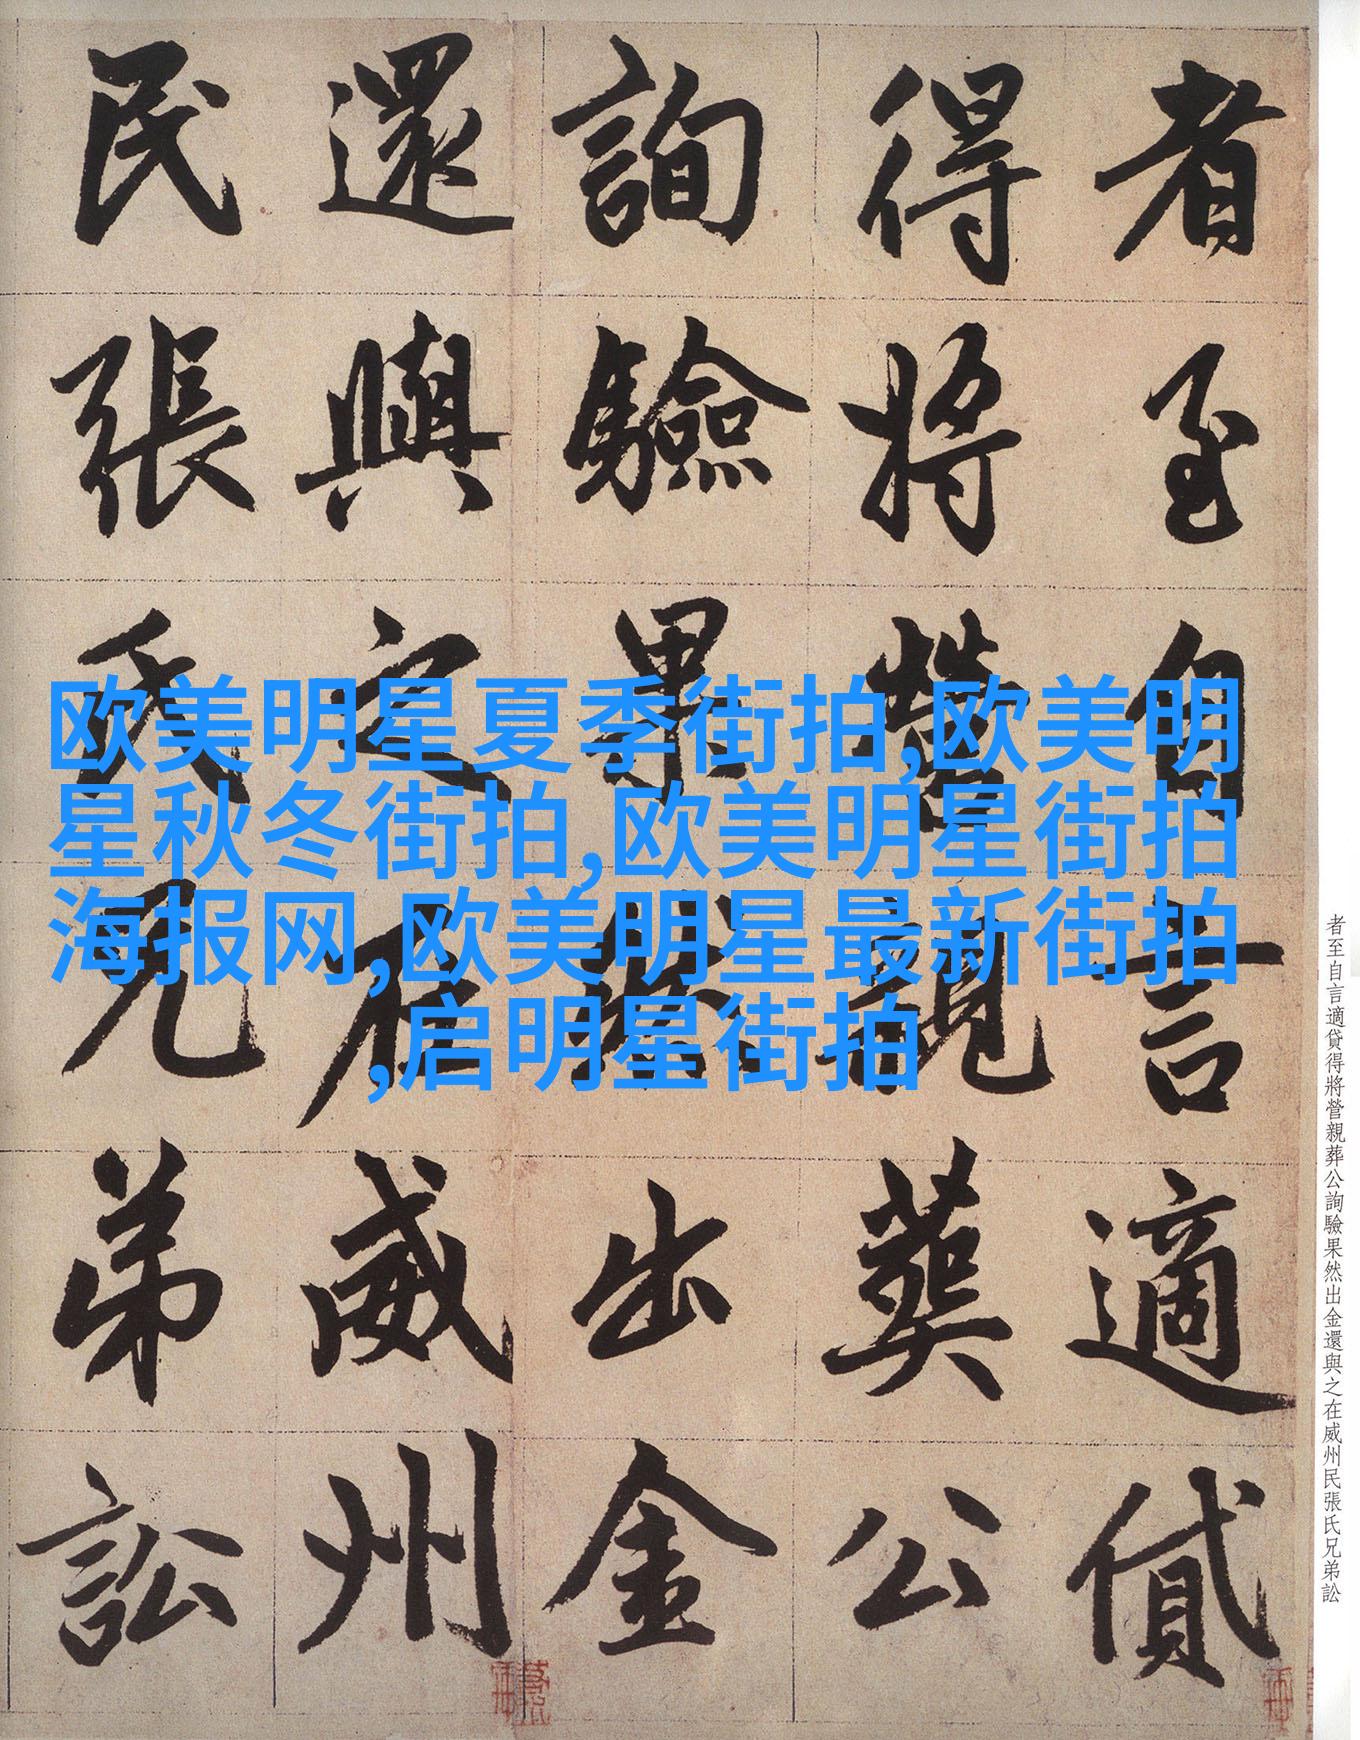 者至自言適貸
得將營親葬公
詢驗果然出金
還與之在威州
民張氏兄弟訟
欧美明星夏季街拍,欧美明
星秋冬街拍,欧美明星街拍
海报网,欧美明星最新街拍
,启明星街拍
者至自言適貸得將營親葬公詢驗果然出金還與之在威州民張氏兄弟訟